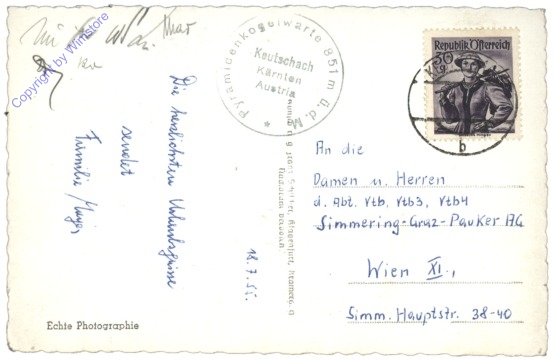 Copyright by Wimstore
Die herzlichsten Urlaubsgrüsse
sendet
Familie Mayer
18.7.55.
Pyramidenkogelwarte 851 m ü.d.M.
Keutschach
Kärnten
Austria
Republik Österreich
30
b
An die
Damen u. Herren
d. Abt. Vtb, Vtb3, Vtb4
Simmering-Graz-Pauker AG
Wien XI.,
Simm. Hauptstr. 38-40
Echte Photographie